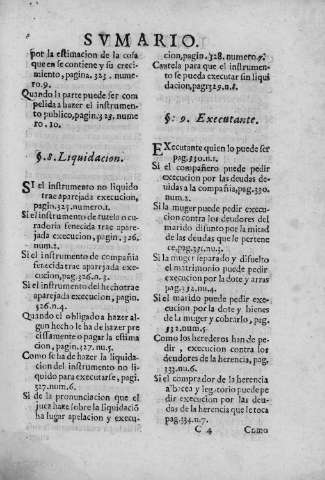 SVMARIO.
por la estimacion de la cosa
que en se contiene y su creci-
miento, pagina. 323. nume-
ro.9.
Quando la parte puede ser com
pelida a hazer el instrumen-
to publico, pagin.323. nume
ro.10.
§.8. Liquidacion.
SI el instrumento no liquido
trae aparejada execucion,
pagin.325.numero.1.
Si el instrumento de tutela o cu-
radoria fenecida trae apare-
jada execucion, pagin. 326.
num.2.
Si el instrumento de compañia
fenecida trae aparejada exe-
cucion, pag.326.n.3.
Si el instrumento del hecho trae
aparejada execucion, pagin.
326.n.4.
Quando el obligado a hazer al-
gun hecho le ha de hazer pre
cissamente o pagar la estima
cion, pagin.327. nu.5.
Como se ha de hazer la liquida-
cion del instrumento no li-
quido para executarse, pagi.
327.num.6.
Si de la pronunciacion que el
juez haze sobre la liquidació
ha lugar apelacion y execu-
cion, pagin.328. numero.7.
Cautela para que el instrumen-
to se pueda executar sin liqui
dacion, pagi329.n.8.
§. 9. Executante.
EXecutante quien lo puede ser
pag.330.n.1.
Si el compañero puede pedir
execucion por las deudas de-
uidas a la compañia, pag.330.
num.2.
Si la muger puede pedir execu-
cion contra los deudores del
marido difunto por la mitad
de las deudas que le pertene
ce, pag.331.nu.3.
Si la muger separado y disuelto
el matrimonio puede pedir
execucion por la dote y arras
pag.332.nu.4.
Si el marido puede pedir exe-
cucion por la dote y bienes
de la muger y cobrarlo, pag.
332.num.5.
Como los herederos han de pe-
dir, execucion contra los
deudores de la herencia, pag.
333.nu.6.
Si el comprador de la herencia
albacea y legatorio puede pe
dir execucion por las deu-
das de la herencia que le toca
pag.334.n.7.
C 4 Como